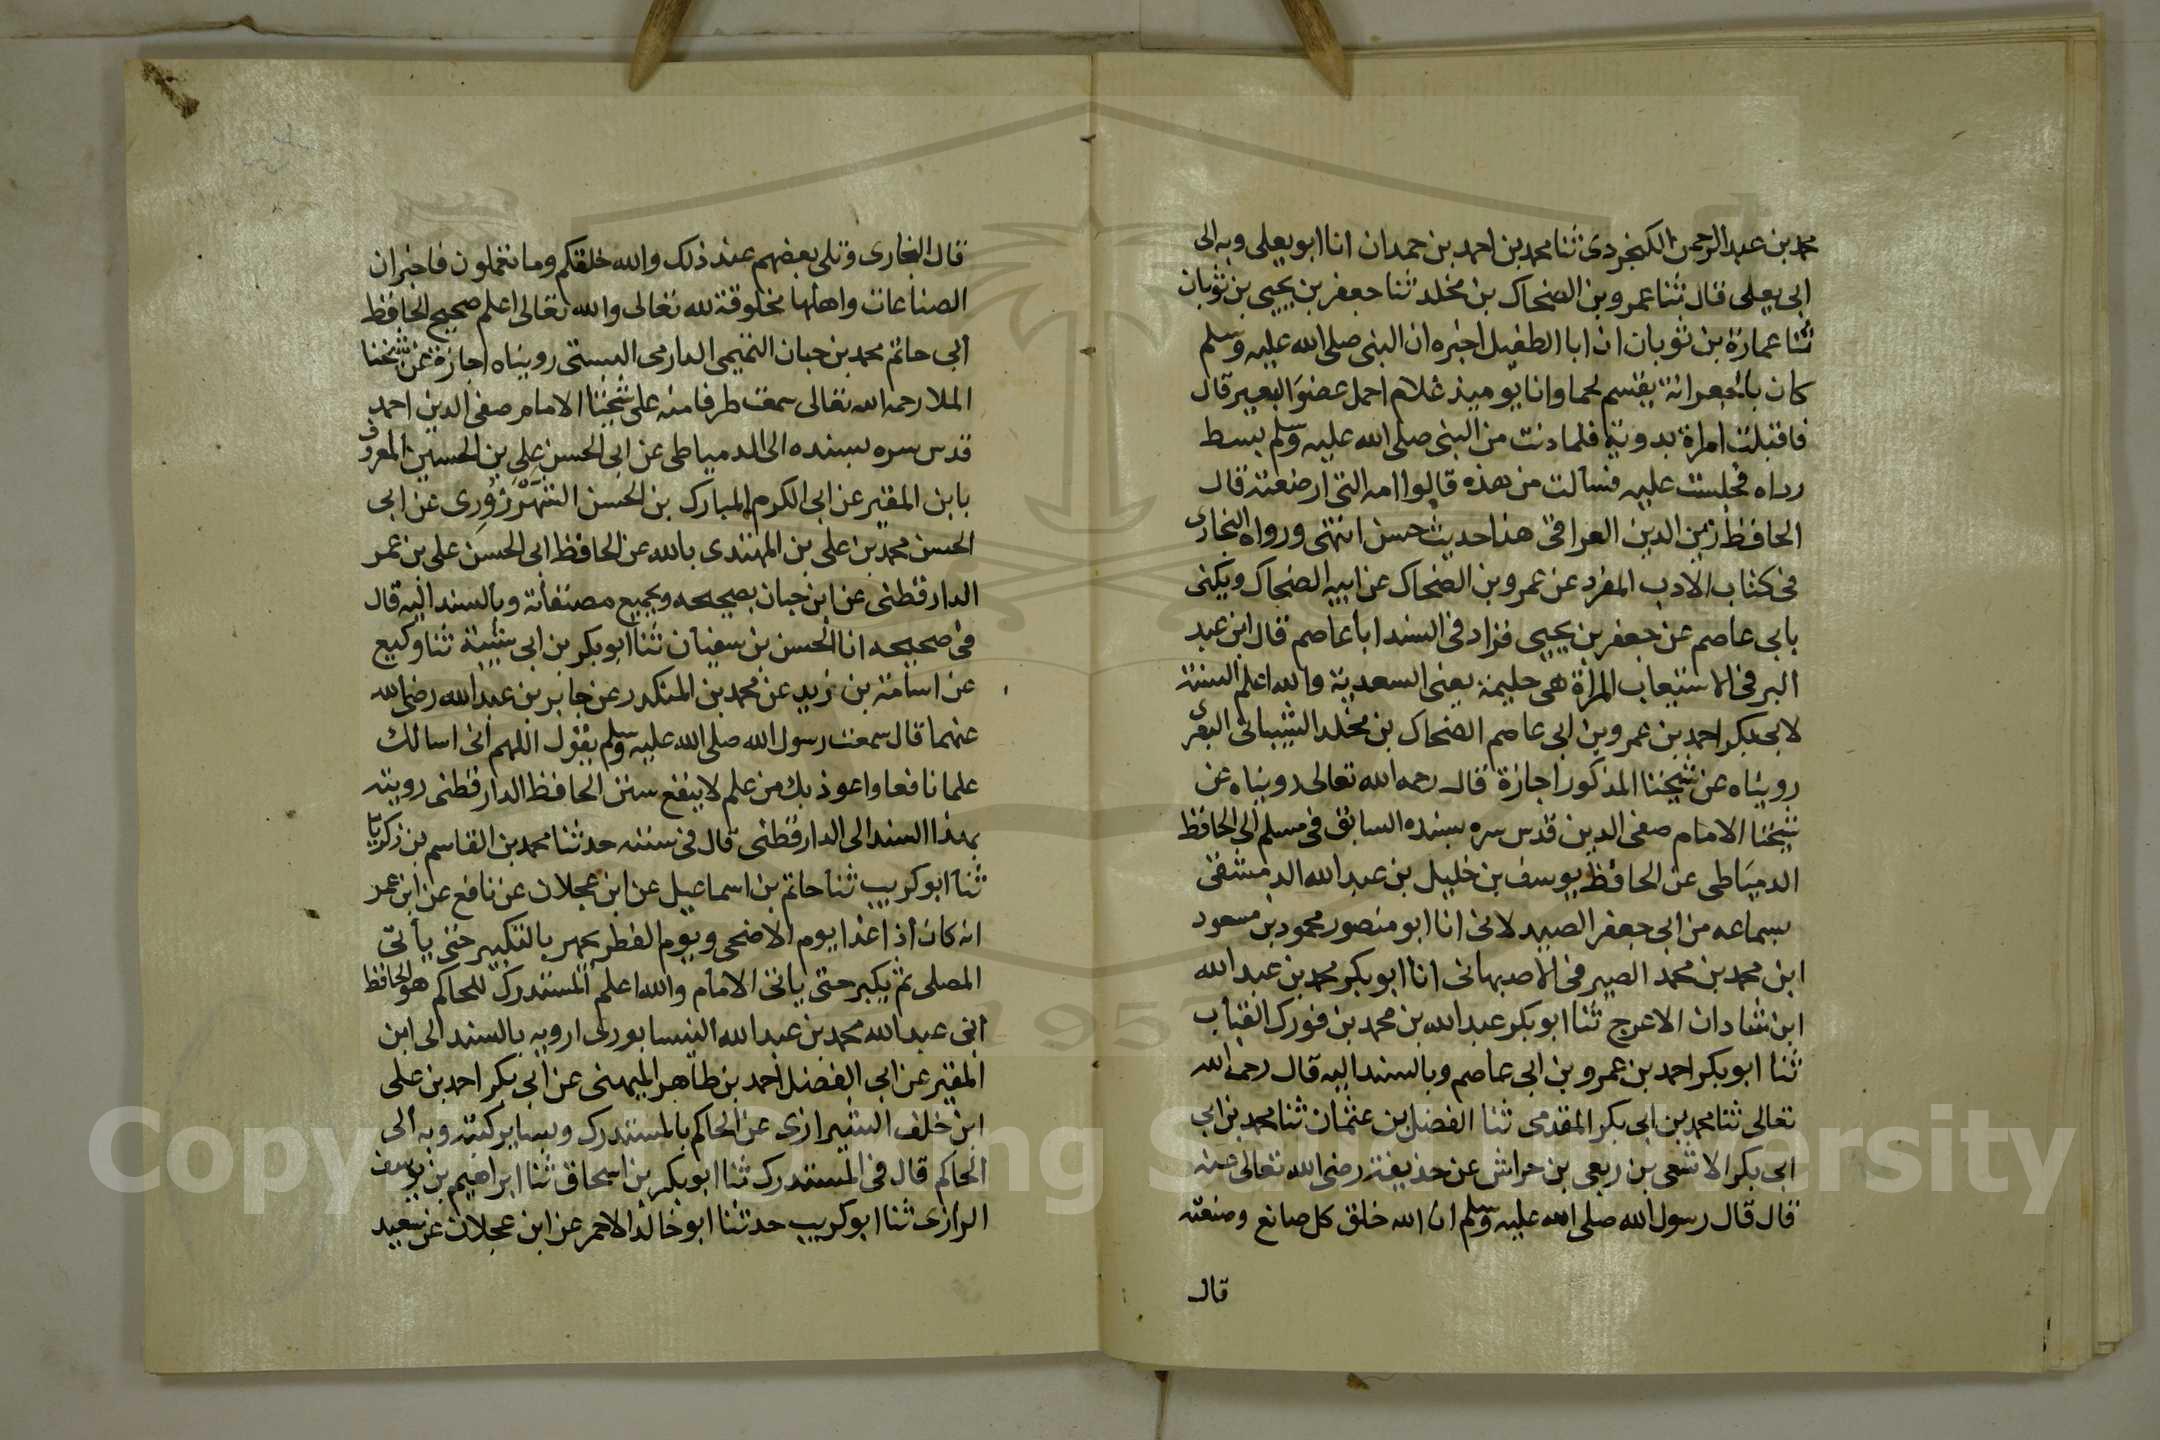 محمد بن عبد الرحمن الكنجردى ثنا محمد بن احمد بن حمدان انا ابو يعلى وبه الى
ابى يعلى قال ثنا عمرو بن الضحاك بن مخلد ثنا جعفر بن يحيى بن ثوبان
ثنا عمارة بن ثوبان ان ابا الطفيل اخبره ان النبى صلى الله عليه وسلم
كان بالجعرانة يقسم لحما وانا يوميذ غلام احمل عضو البعير قال
فاقبلت امراة بدوية فلما دنت من النبى صلى الله عليه وسلم بسط
رداه فجلست عليه فسألت من هذه قالوا امه التى ارضعته قال
الحافظ زين الدين العراقى هذا حديث حسن انتهى ورواه البخارى
فى كتاب الادب المفرد عن عمرو بن الضحاك عن ابيه الضحاك ويكنى
بابى عاصم عن جعفر بن يحيى فزاد فى السند ابا عاصم قال ابن عبد
البر فى الاستيعاب المرأة هى حليمة يعنى السعدية والله اعلم السنة
لابى بكر احمد بن عمرو بن ابى عاصم الضحاك بن مخلد الشيبانى
رويناه عن شيخنا المذكور اجازة قال رحمه الله تعالى رويناه عن
شيخنا الامام صفى الدين قدس سره بسنده السابق فى مسلم الى الحافظ
الدمياطى عن الحافظ يوسف بن خليل بن عبد الله الدمشقى
بسماعه من ابى جعفر الصيدلانى انا ابو منصور محمود بن مسعود
ابن محمد بن محمد الصيرفى الاصبهانى انا ابو بكر محمد بن عبد الله
ابن شاذان الاعرج ثنا ابو بكر عبد الله بن محمد بن فورك القباب
ثنا ابو بكر احمد بن عمرو بن ابى عاصم وبالسند اليه قال رحمه الله
تعالى ثنا محمد بن ابى بكر المقدمى ثنا الفضل بن عثمان ثنا محمد بن ابى
ابى بكر الاشعى بن ربعى بن حراش عن حذيفة رضى الله تعالى عنه
قال قال رسول الله صلى الله عليه وسلم ان الله خلق كل صانع وصنعته
قال
قال البخارى وتلى بعضهم عند ذلك والله خلقكم وما تعملون فاخبر ان
الصناعات واهلها مخلوقة لله تعالى والله تعالى اعلم صحيح الحافظ
ابى حاتم محمد بن حبان التميمى الدارمى البستى رويناه اجازة عن شيخنا
الملا رحمه الله تعالى سمعت طرفا منه على شيخنا الامام صفى الدين احمد
قدس سره بسنده الى الدمياطى عن ابى الحسن على بن الحسين المعروف
بابن المقير عن ابى الكرم المبارك بن الحسن الشهرزورى عن ابى
الحسن محمد بن على بن المهتدى بالله عن الحافظ ابى الحسن على بن عمر
الدارقطنى عن ابن حبان بصحيحه وبجميع مصنفاته وبالسند اليه قال
فى صحيحه انا الحسن بن سفيان ثنا ابو بكر بن ابى شيبة ثنا وكيع
عن اسامة بن زيد عن محمد بن المنكدر عن جابر بن عبد الله رضى الله
عنهما قال سمعت رسول الله صلى الله عليه وسلم يقول اللهم انى اسالك
علما نافعا واعوذ بك من علم لا ينفع سنن الحافظ الدارقطنى رويته
بهذا السند الى الدارقطنى قال فى سننه حدثنا محمد بن القاسم بن زكريا
ثنا ابو كريب ثنا حاتم بن اسماعيل عن ابن عجلان عن نافع عن ابن عمر
انه كان اذا غدا يوم الاضحى ويوم الفطر يجهر بالتكبير حتى يأتى
المصلى ثم يكبر حتى ياتى الامام والله اعلم المستدرك للحاكم هو الحافظ
ابى عبد الله محمد بن عبد الله النيسابورى ارويه بالسند الى ابن
المقير عن ابى الفضل احمد بن طاهر الميهنى عن ابى بكر احمد بن على
ابن خلف الشيرازى عن الحاكم بالمستدرك وبساير كتبه وبه الى
الحاكم قال فى المستدرك ثنا ابو بكر بن اسحاق ثنا ابراهيم بن يوسف
الرازى ثنا ابو كريب حدثنا ابو خالد الاحمر عن ابن عجلان عن سعيد
Copyright © King Saud University
1957